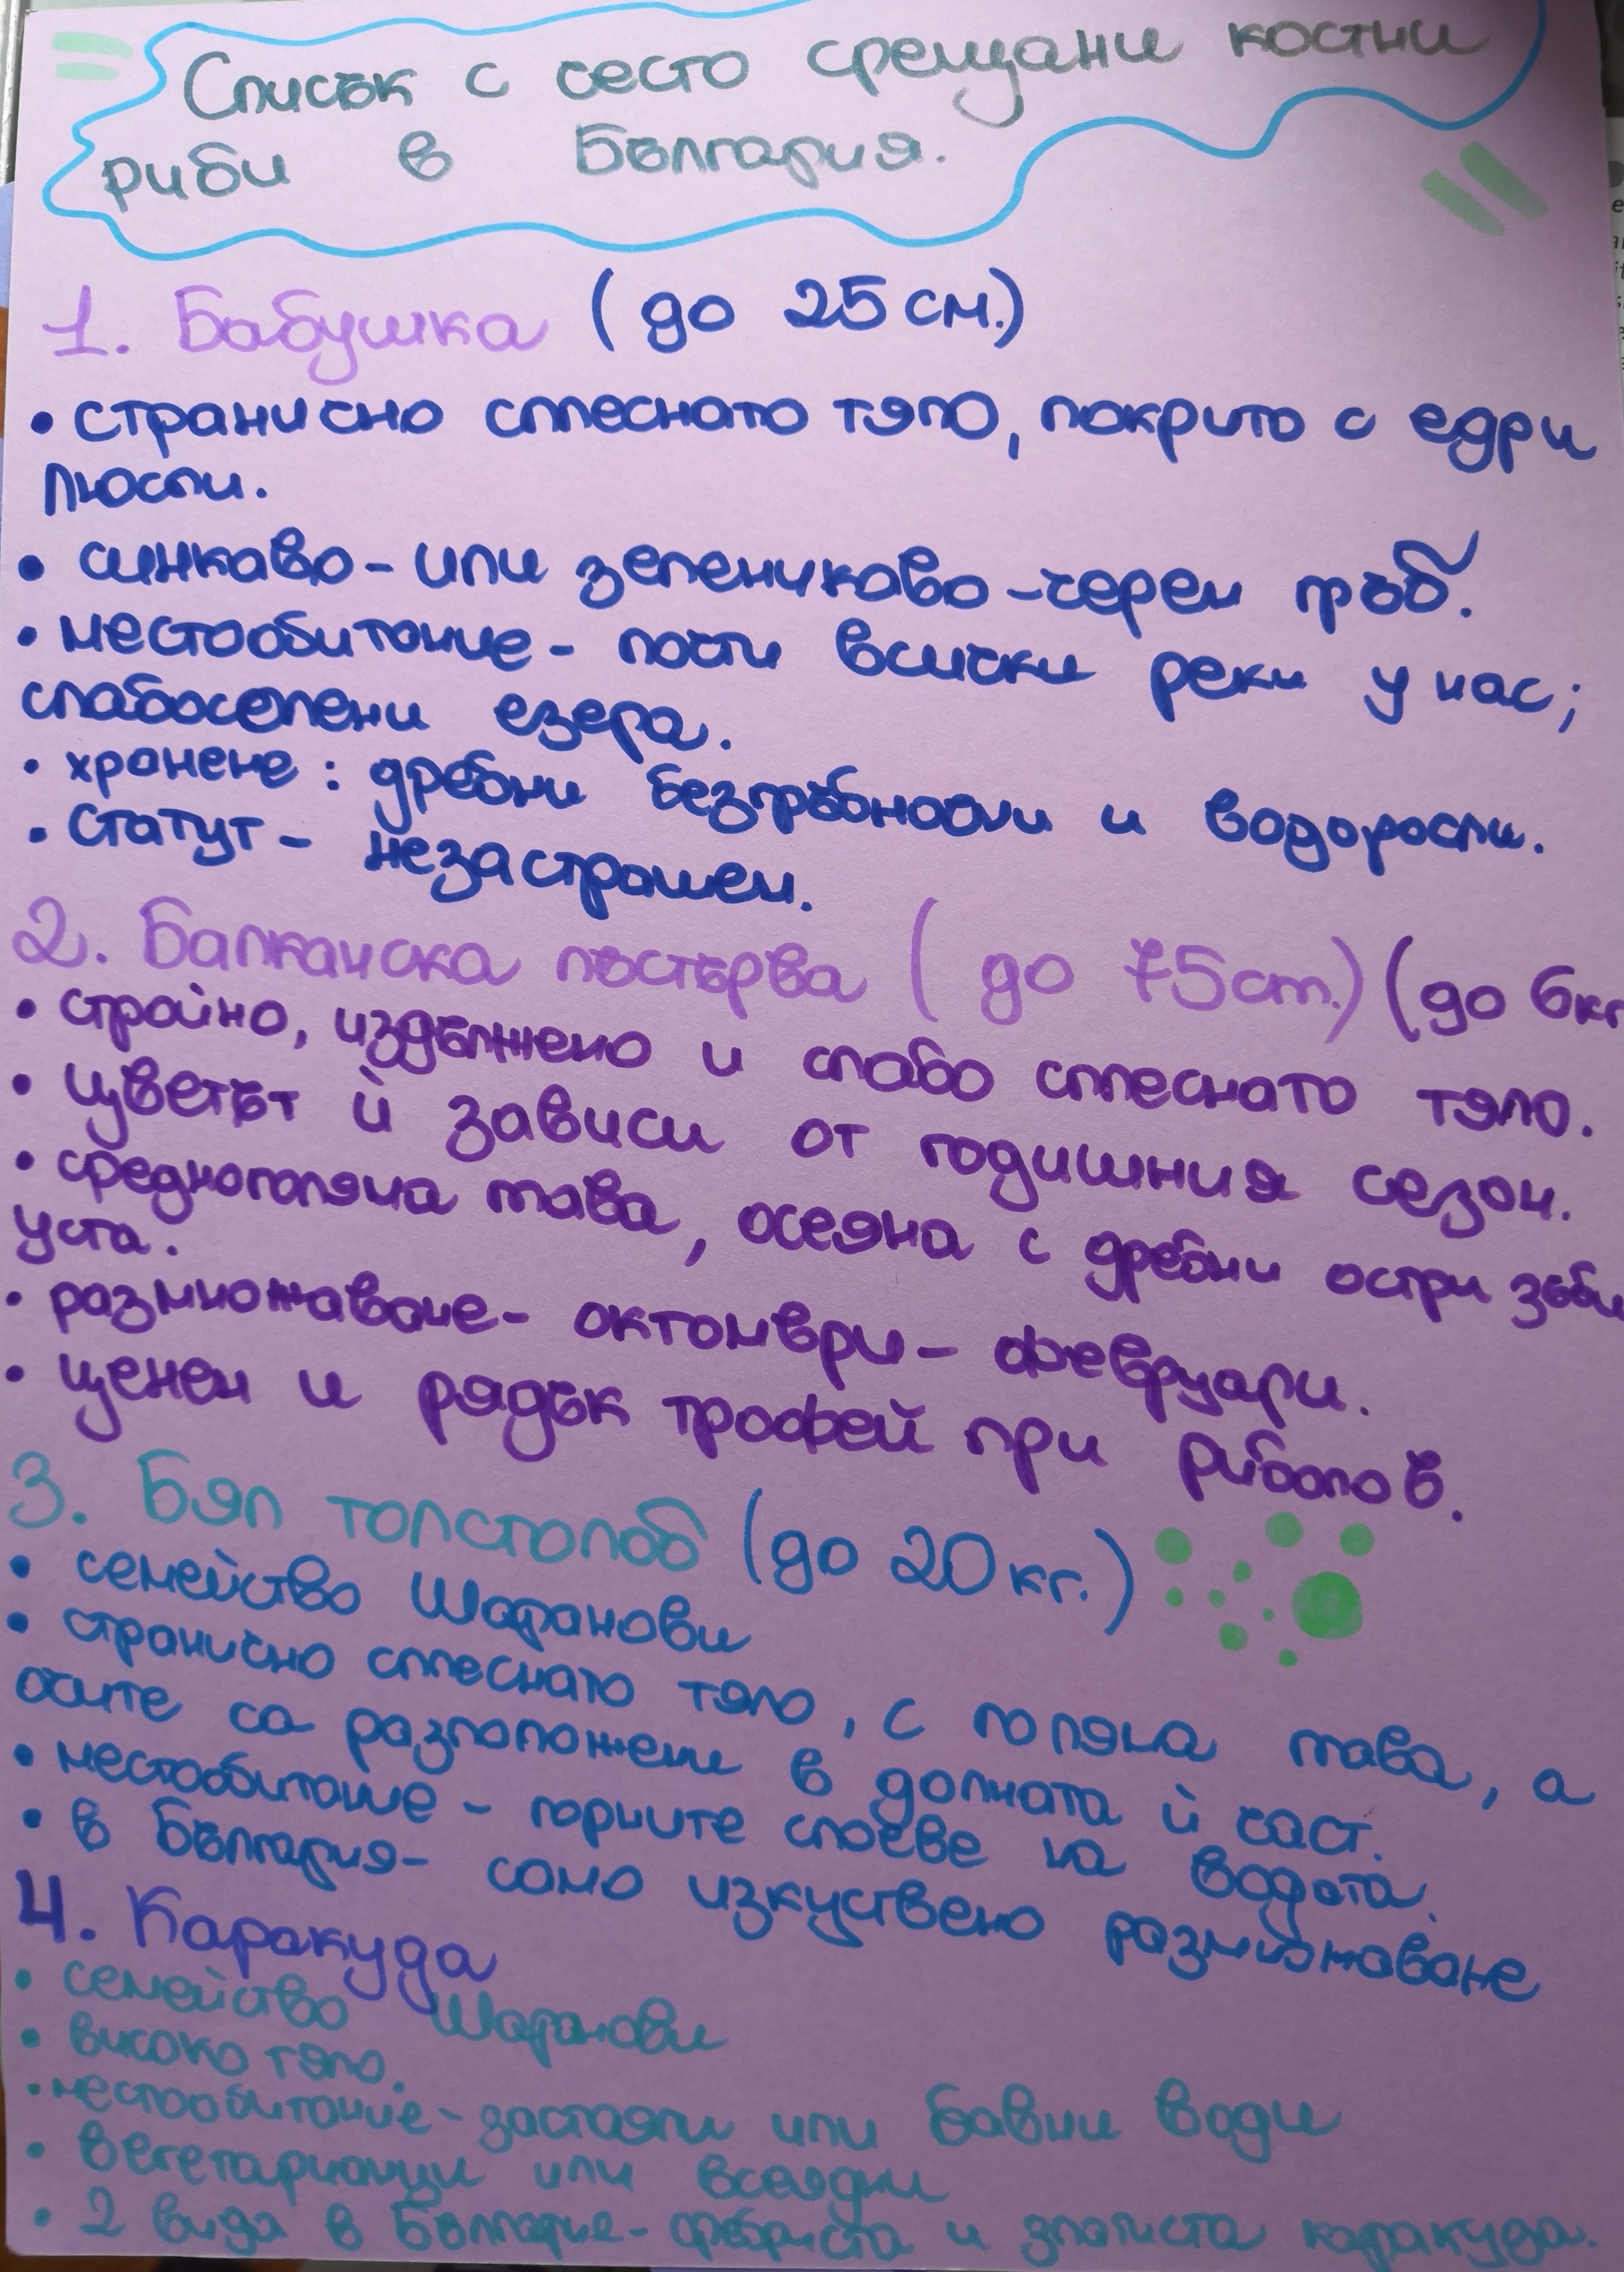 Списък с често срещани костни
риби в България.
1. Бабушка (до 25 см.)
• странично сплеснато тяло, покрито с едри
люспи.
• синкаво-или зеленикаво-черен гръб.
• местообитание - почти всички реки у нас;
слабосолени езера.
• хранене : дребни безгръбначни и водорасли.
• Статут - незастрашен.
2. Балканска пъстърва ( до 75cm.) (до 6кг
• стройно, издължено и слабо сплеснато тяло.
• цветът ѝ зависи от годишния сезон.
• средноголяма глава, осеяна с дребни остри зъби
уста.
• размножаване- октомври- февруари.
• ценен и рядък трофей при риболов.
3. Бял толстолоб (до 20 кг.)
• семейство Шаранови
• странично сплеснато тяло, с голяма глава, а
очите са разположени в долната ѝ част.
• местообитание - горните слоеве на водата.
• в България- само изкуствено размножаване
4. Каракуда
• семейство Шаранови
• високо тяло.
• местообитание - застояли или бавни води
• вегетарианци или всеядни
• 2 вида в България- сребриста и златиста каракуда.